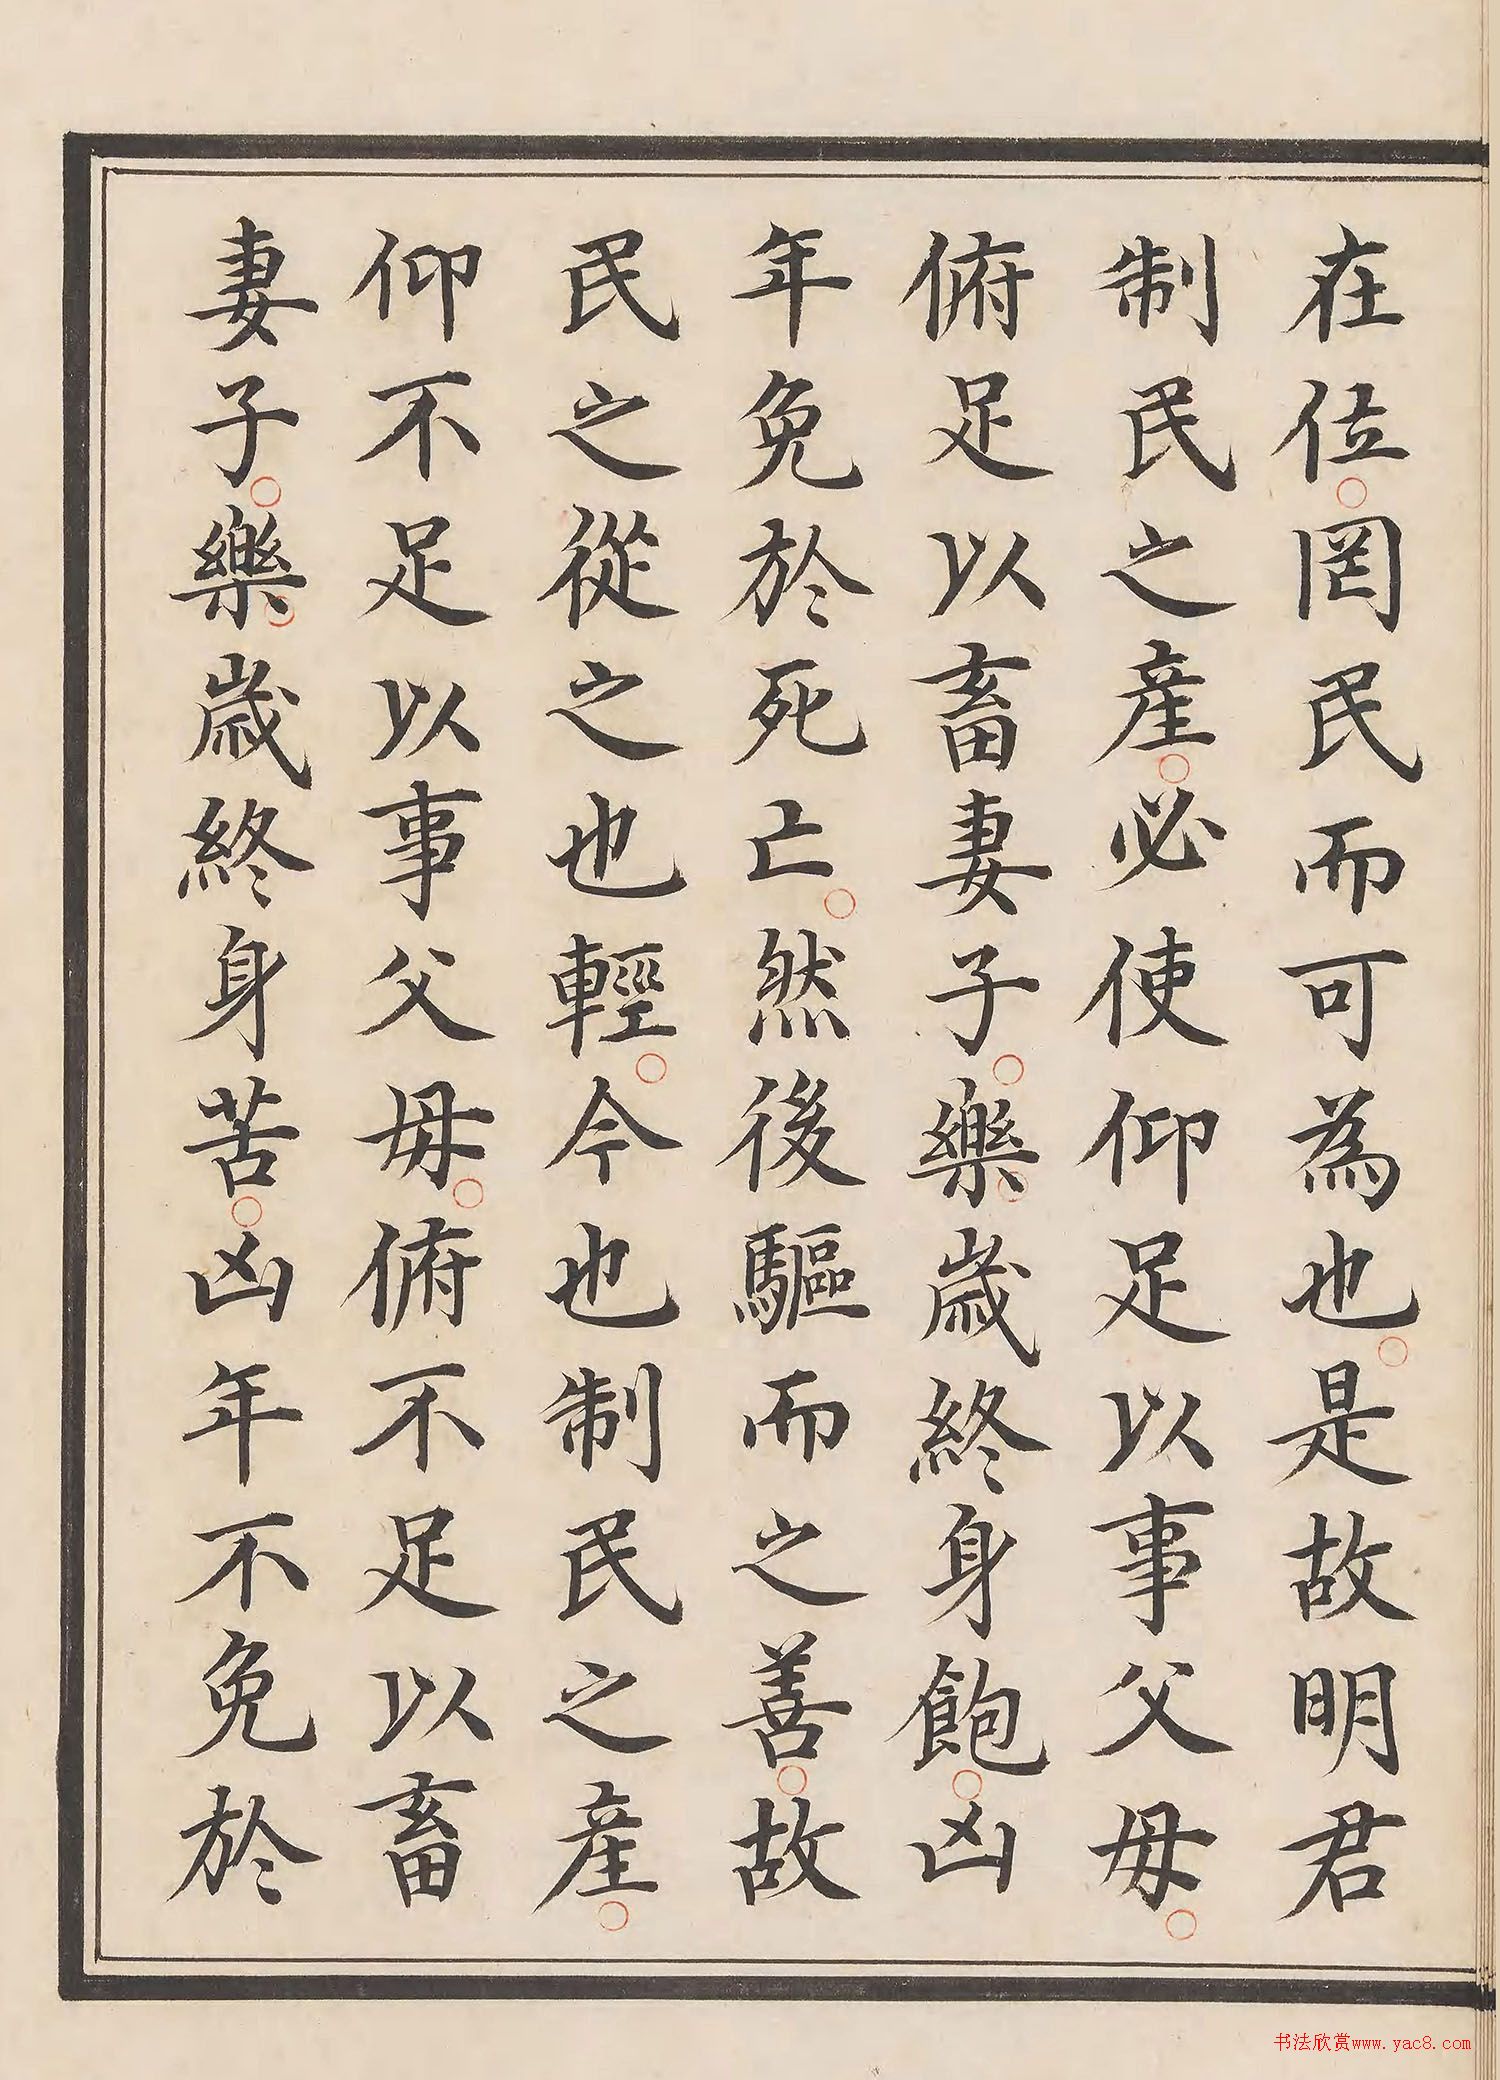 在位○罔民而可為也○是故明君
制民之産○必使仰足以事父母○
俯足以畜妻子○樂○歲終身飽○凶
年免於死亡○然後驅而之善○故
民之從之也輕○今也制民之産○
仰不足以事父母○俯不足以畜
妻子○樂○歲終身苦○凶年不免於
书法欣赏www.yac8.com